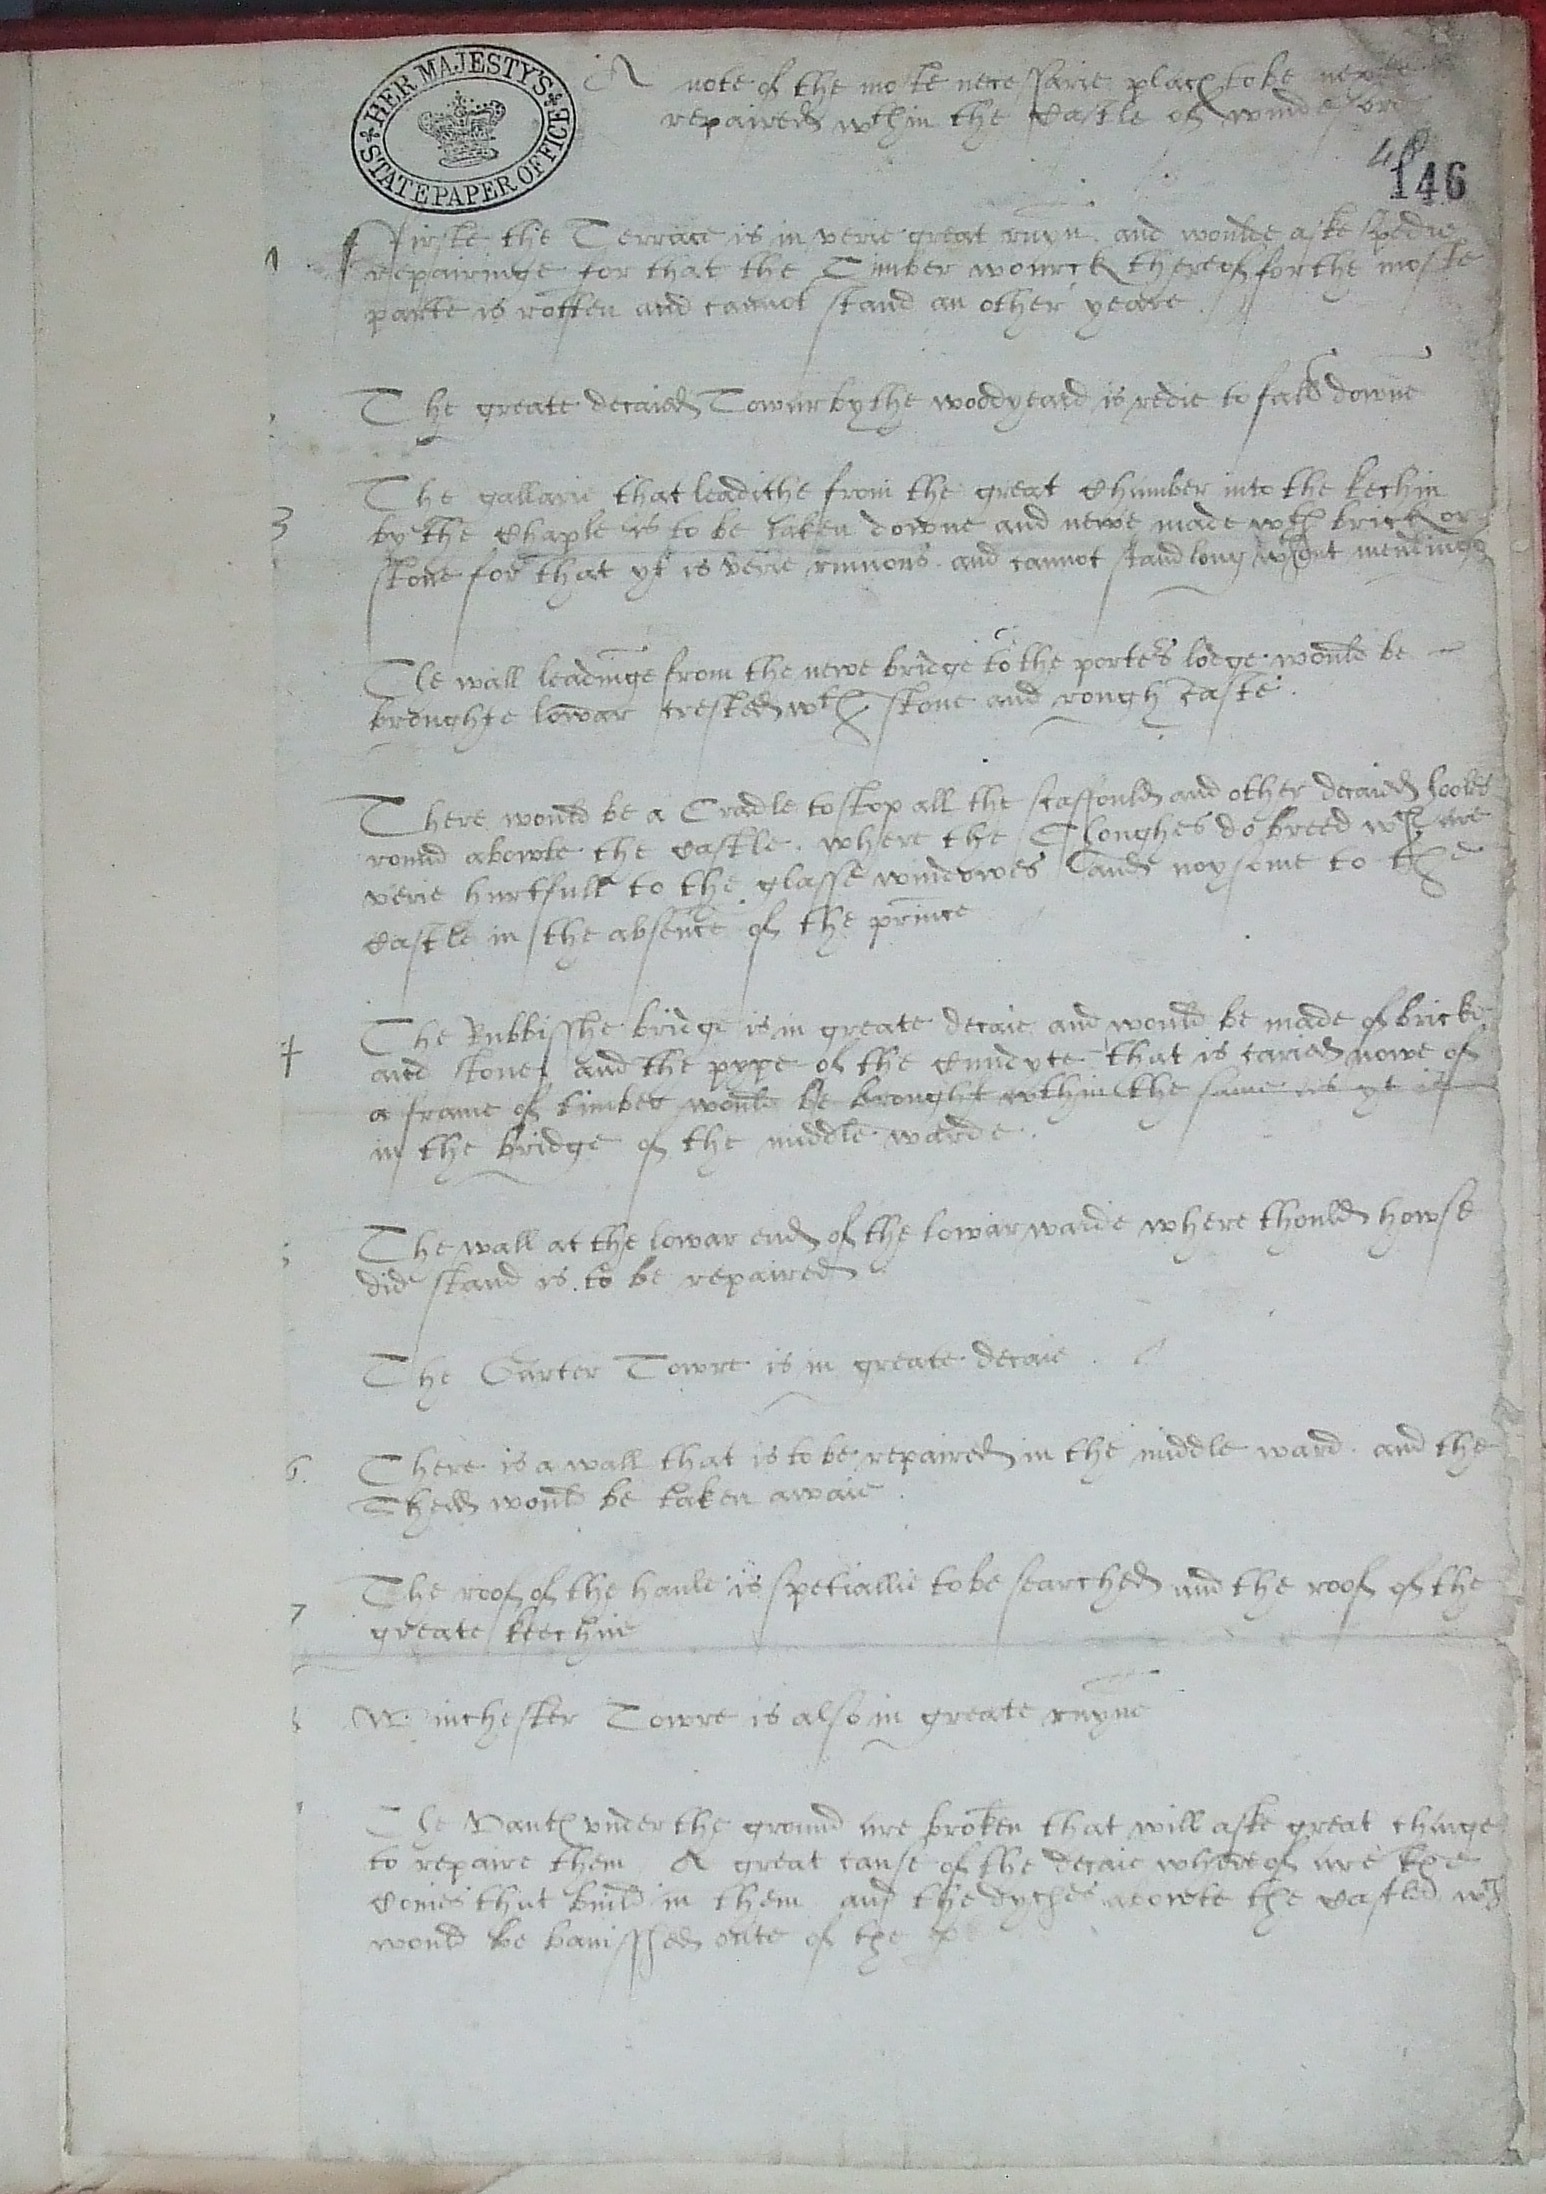 HER MAJESTY'S STATE PAPER OFFICE
A note of the moste necessarie places to be newe
repaired wthin the Castle of windesore
48
146
1 Firste the Terrace is in verie great ruyn. and woulde aske spedie
repairinge for that the Timber wourck thereof for the moste
parte is rotten and cannot stand an other yeare.
The greate decaied Towur by the woddyeard is redie to fall downe
The gallarie that leadithe from the great Chamber into the kechin
3 by the Chaple is to be taken downe and newe made wth brick or
stone for that yt is verie ruinous. and cannot stand long wthout mendinge
The wall leadinge from the newe bridge to the porters lodge would be
broughte lowar crested wth stone and rough caste.
There would be a Cradle to stop all the scaffould and other decaied hooles
round abowte the castle. where the Choughes do breed wch are
verie hurtfull to the glasse windowes and noysome to the
Castle in the absence of the prince
4 The Rubbisshe bridge is in greate decaie and would be made of bricke
and stone and the pype of the Cundyte that is caried nowe of
a frame of timber would be brought wthin the same as yt is
in the bridge of the middle warde.
5 The wall at the lowar end of the lowar warde where thould howse
did stand is to be repaired
The Garter Towre is in greate decaie.
6. There is a wall that is to be repaired in the middle ward. and the
would be taken awaie.
7 The roof of the haule is spetiallie to be searched and the roof of the
greate keechine
Winchester Towre is also in greate ruyne
The Vautes under the ground are broken that will aske great charge
to repaire them A great cause of the decaie whereof are the
Conies that build in them and the dyches abowte the castle wch
would be banisshed oute of the